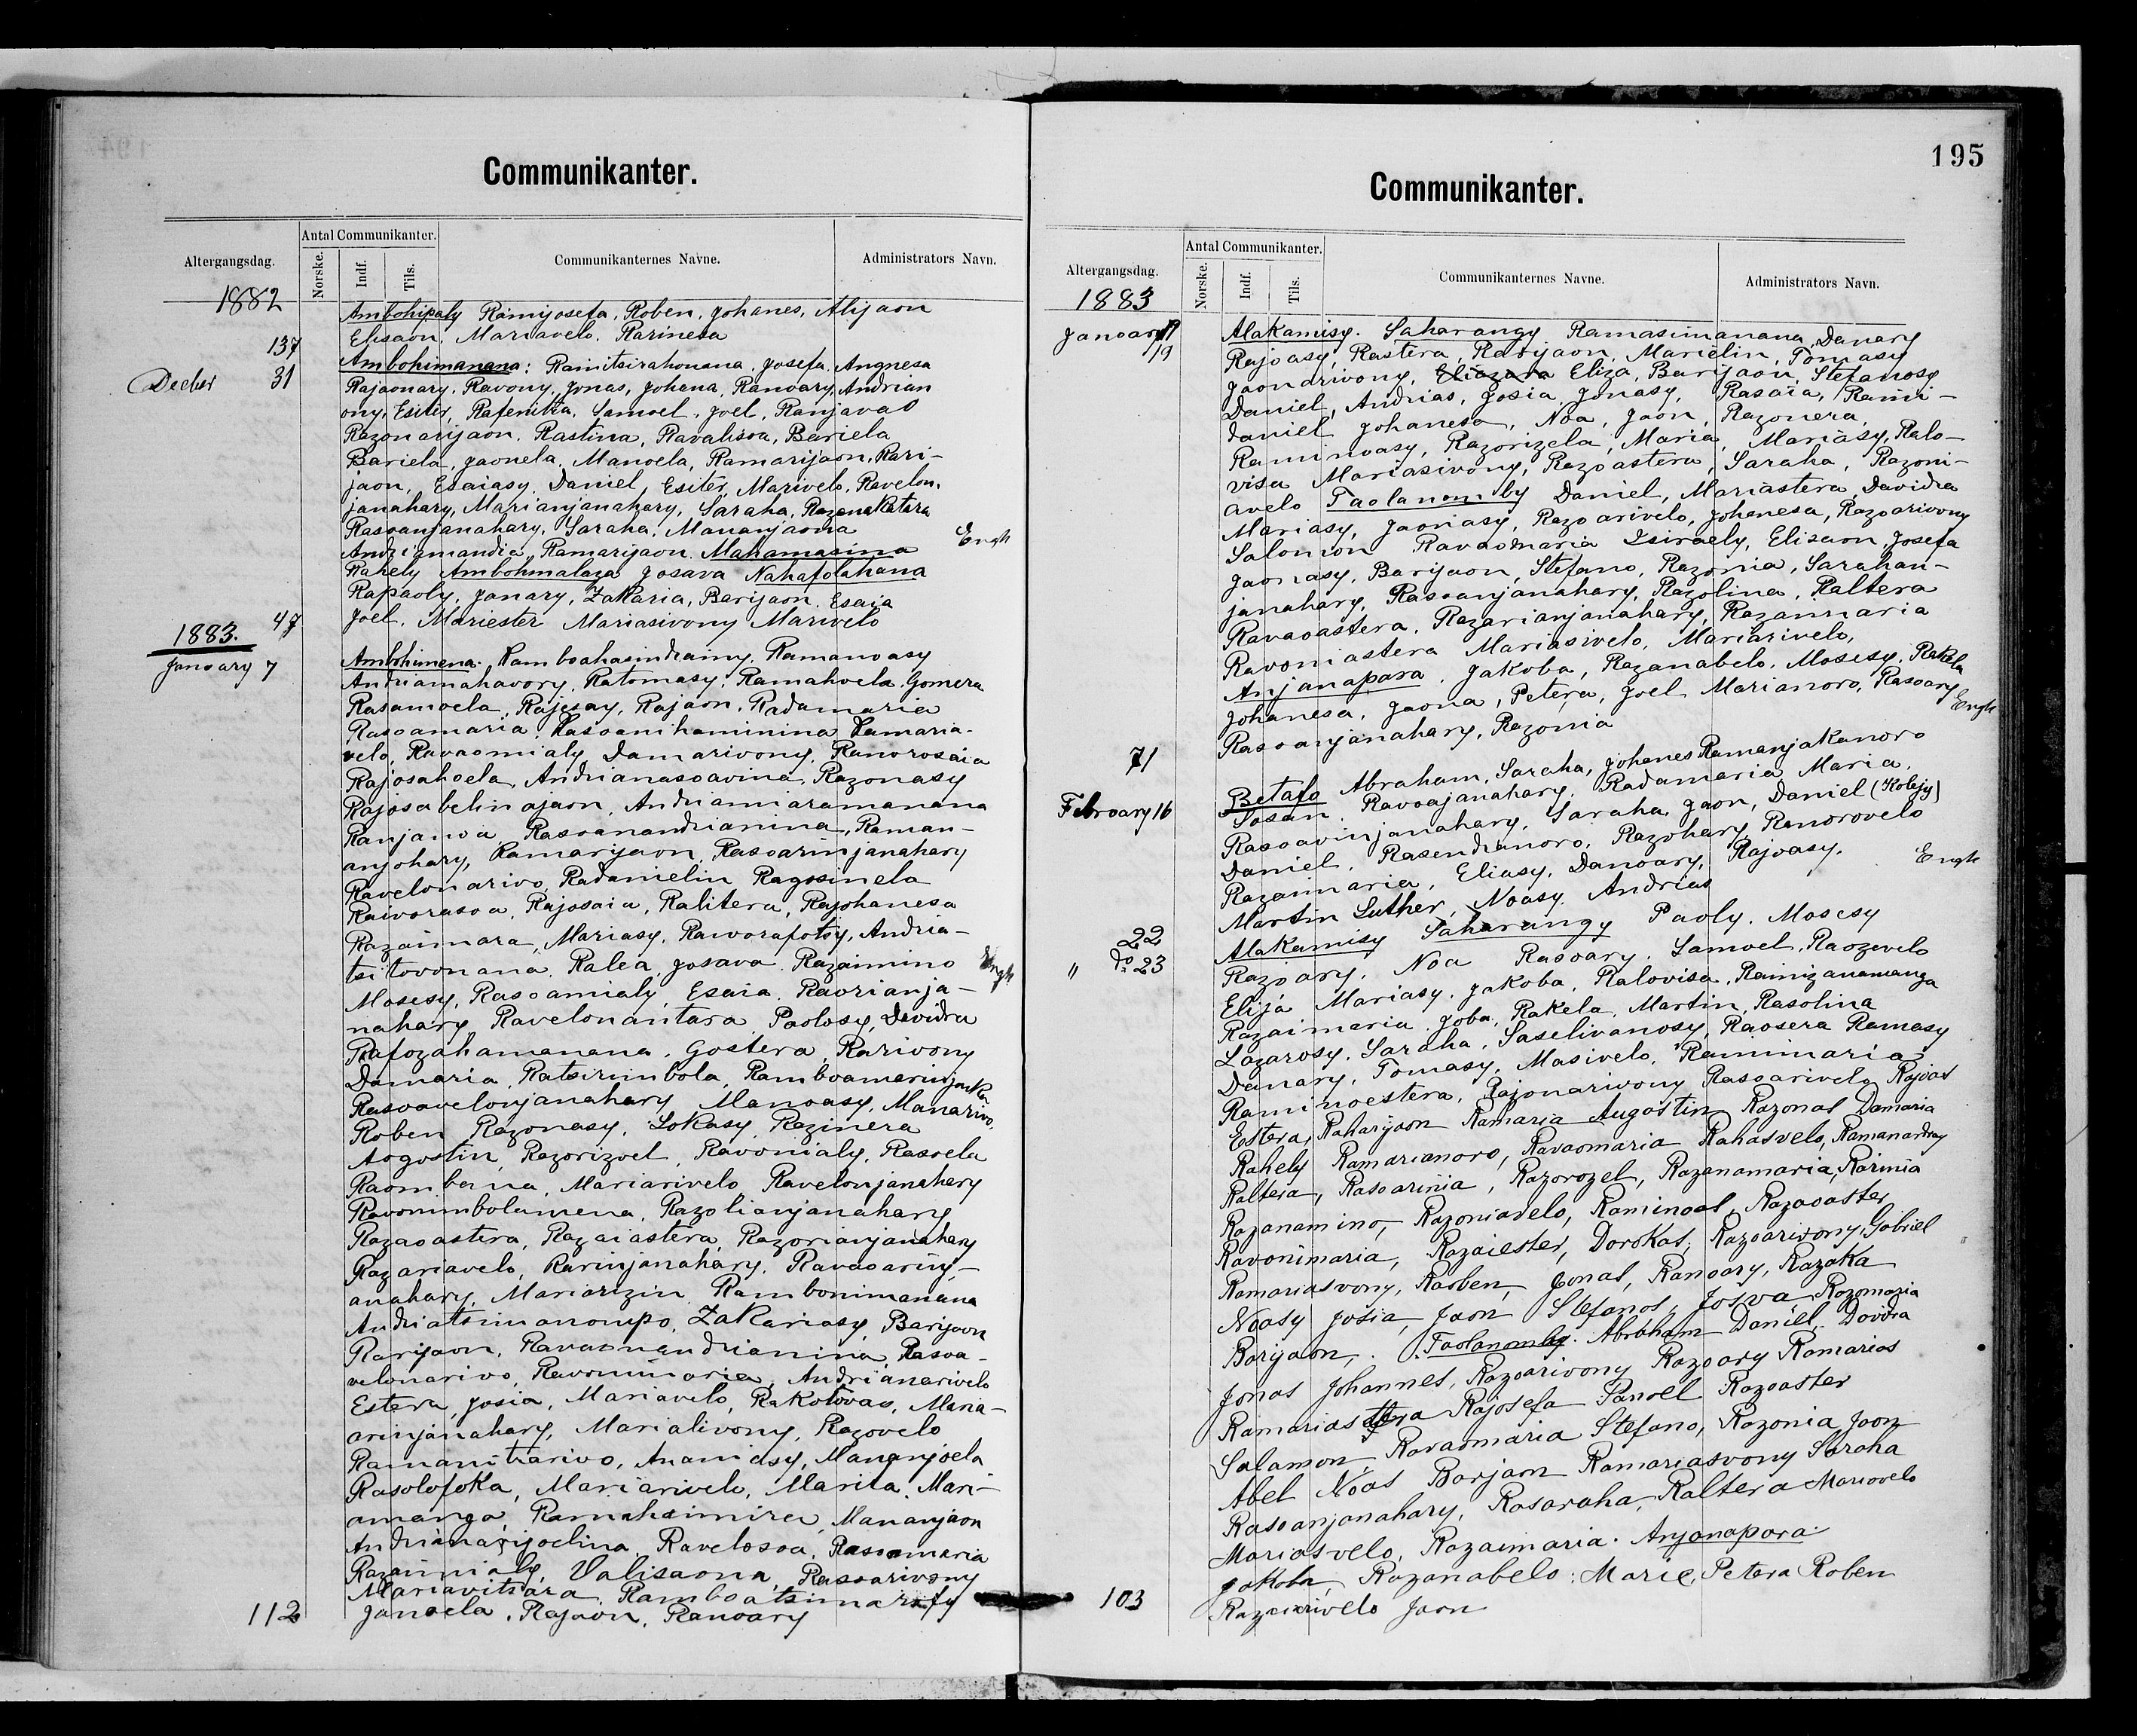 Communikanter.
Altergangsdag.
Antal Communikanter.
Norske.
Indf.
Tils.
Communikanternes Navne.
Administrators Navn.
1882
Ambohipaly Ramijosefa, Roben, Johanes, Alijaon
Elisaon, Mariavelo, Rarinesa
137
Decber 31
Ambohimanana: Rainitsirahonana, Josefa, Angnesa
Rajaonary, Ravony, Jonas, Johana, Ranoary, Andrian
ony, Esiter, Rafenitra, Samoel, Joel, Ranjavao
Razonarijaon, Rastina, Ravalisoa, Bariela
Bariela, Jaonela, Manoela, Ramarijaon, Rari-
jaon, Esaiasy, Daniel, Esiter, Marivelo, Ravelon,
janahary, Marianjanahary, Saraha, Razanakatara
Rasoanjanahary, Saraha, Mananjaona
Andriamandia, Ramarijaon. Mahamasina Engh
Rahely Ambohimalaza Josava Nahafolahana
Rapaoly, Janary, Zakaria, Barijaon, Esaia
Joel, Mariester Mariasivony Marivelo
47
1883.
January 7
Ambohimena. Ramboahasindrainy, Ramanoasy
Andriamahavory, Ratomasy, Ramahoela, Gomera
Rasamoela, Rajesay, Rajaon, Radamaria
Rasoamaria, Rasoanihaminina Ramaria-
velo, Ravaomialy Damarivony, Ranorosáia
Rajosahoela, Andrianasoavina, Razonasy
Rajosabelinajaon, Andriamiaramanana
Ranjanoa Rasoanandrianina, Raman-
anjohary, Ramarijaon, Rasoarinjanahary
Ravelonarivo, Radanielin Ragosinela
Raivorasoa, Rajosaia, Ralitera, Rajohanesa
Razaimara, Mariasy, Raivorafotsy, Andria-
tsitovonana, Ralea, Josava, Razaimino Engh
Mosesy, Rasoamialy, Esaia, Raorianja-
nahary Ravelonantara, Paolosy, Davidra
Rafozahamanana, Gostera, Rarivony
Damaria, Ratsirimbola, Ramboamerinjaka
Rasoavelonjanahary Manoasy, Manarivo,
Roben Razonasy, Lokasy, Razinera
Aogostin, Razorizoel, Ravonialy, Rasoela
Raombana, Mariarivelo, Ravelonjanahary
Ravonimbolamena, Razolianjanahary
Razaoastera, Razaiastera, Razorianjanahary
Razariavelo, Rarinjanahary, Ravaoarinj-
anahary, Mariarizin, Rambonimanana
Andriatsimanompo, Zakariasy, Barijaon
Rarijaon, Ravaonandrianina, Rasoa-
velonarivo, Ravonimaria, Andrianarivelo
Estera, Josia, Mariavelo, Rakotovao, Mana-
arinjanahary, Marialivony, Razovelo
Ramanitrarivo, Ananiasy, Mananjoela
Rasolofoka, Mariarivelo, Marita, Mari-
amanga, Ramahaimirer, Mananjaon
Andrianarijoelina, Ravelosoa, Rasoamaria
Razaimialy, Valisaona, Rasoarivony
Mariavitsara, Ramboatsimarofy
112
Janoela, Rajaon, Ranoary
195
Communikanter.
Altergangsdag.
Antal Communikanter.
Norske.
Indf.
Tils.
Communikanternes Navne.
Administrators Navn.
1883
January 19
19
Alakamisy. Saharangy Ramasimanana, Danary
Rajoasy, Rastera, Rabijaon, Marielin, Tomasy
Jaonarivony, Eliazara Eliza, Barijaon, Stefanosy
Daniel, Andrias, Josia, Jonasy, Rasaia, Rami-
daniel Johanesa, Noa, Jaon, Razonera,
Raminoasy, Razorizela, Maria, Mariasy, Ralo-
visa Mariasivony, Razoastera, Saraha, Razoni-
avelo Taolanomby Daniel, Mariastera, Davidra
Mariasy, Jaonasy, Razoarivelo, Johanesa, Razoarivony
Salomon Ravaomaria Isiraely, Elisaon, Josefa
Jaonasy, Barijaon, Stefano, Razonia, Sarahan-
janahary, Rasoanjanahary, Razolina, Raltera
Ravaoastera, Razarianjanahary, Razanmaria
Ravoniastera Mariasivelo, Mariarivelo,
Anjanapara. Jakoba, Razanabelo, Mosesy, Rakela
Johanesa, Jaona, Petera, Joel Marianoro, Rasoary Engh
Rasoanjanahary, Razonia
71
February 16
Betafo Abraham, Saraha, Johanes Ramanjakanoro
Sosan, Ravoajanahary, Radamaria Maria,
Rasoavinjanahary, Saraha, Jaon, Daniel (Kolejy)
Daniel, Rasendranoro, Razohary, Ranorovelo
Razaimaria, Eliasy, Danoary, Rajoasy. Engh
Martin Luther, Noasy, Andrias
22
" do 23
Alakamisy Saharangy Paoly, Mosesy
Razoary, Noa Rasoary, Samoel, Raozevelo
Elija Mariasy, Jakoba, Ralovisa, Rainizanamanga
Razaimaria, Joba, Rakela, Martin, Rasolina
Lazarosy, Saraha, Saselivanosy, Raosera Ramasy
Danary, Tomasy, Masivelo, Raminmaria
Raminoestera, Rajonarivony Rasoarivelo Rajoas
Eostera, Raharijaon Ramaria Augostin Razonas Damaria
Rahely Ramarianoro, Ravaomaria Rahasvelo, Ramanandray
Raltera, Rasoarinia, Razorozel, Razanamaria, Rarinia
Razanamino, Razoniavelo, Raminoas, Razaoaster
Ravonimaria, Razaiester, Dorokas, Razoarivony, Gabriel
Ramariasvony, Raoben, Jonas, Ranoary, Razaka
Noasy Josia, Jaon Stefanos, Josva Razomaria
Barijaon, . Taolanomby. Abraham Daniel, Davidra
Jonas Johannes, Razoarivony Razoary Ramarias
Ramariastera Rajosefa Panoel Razoaster
Salamon, Ravaomaria Stefano, Razonia Jaon
Abel Noas Barjaon Ramariasvony Saraha
Rasoanjanahary, Rasaraha, Raltera Mariavelo
Mariasvelo, Razaimaria. Anjanapara
Jakoba, Razanabelo, Marie, Petera Roben
103
Razaiarivelo Jaon